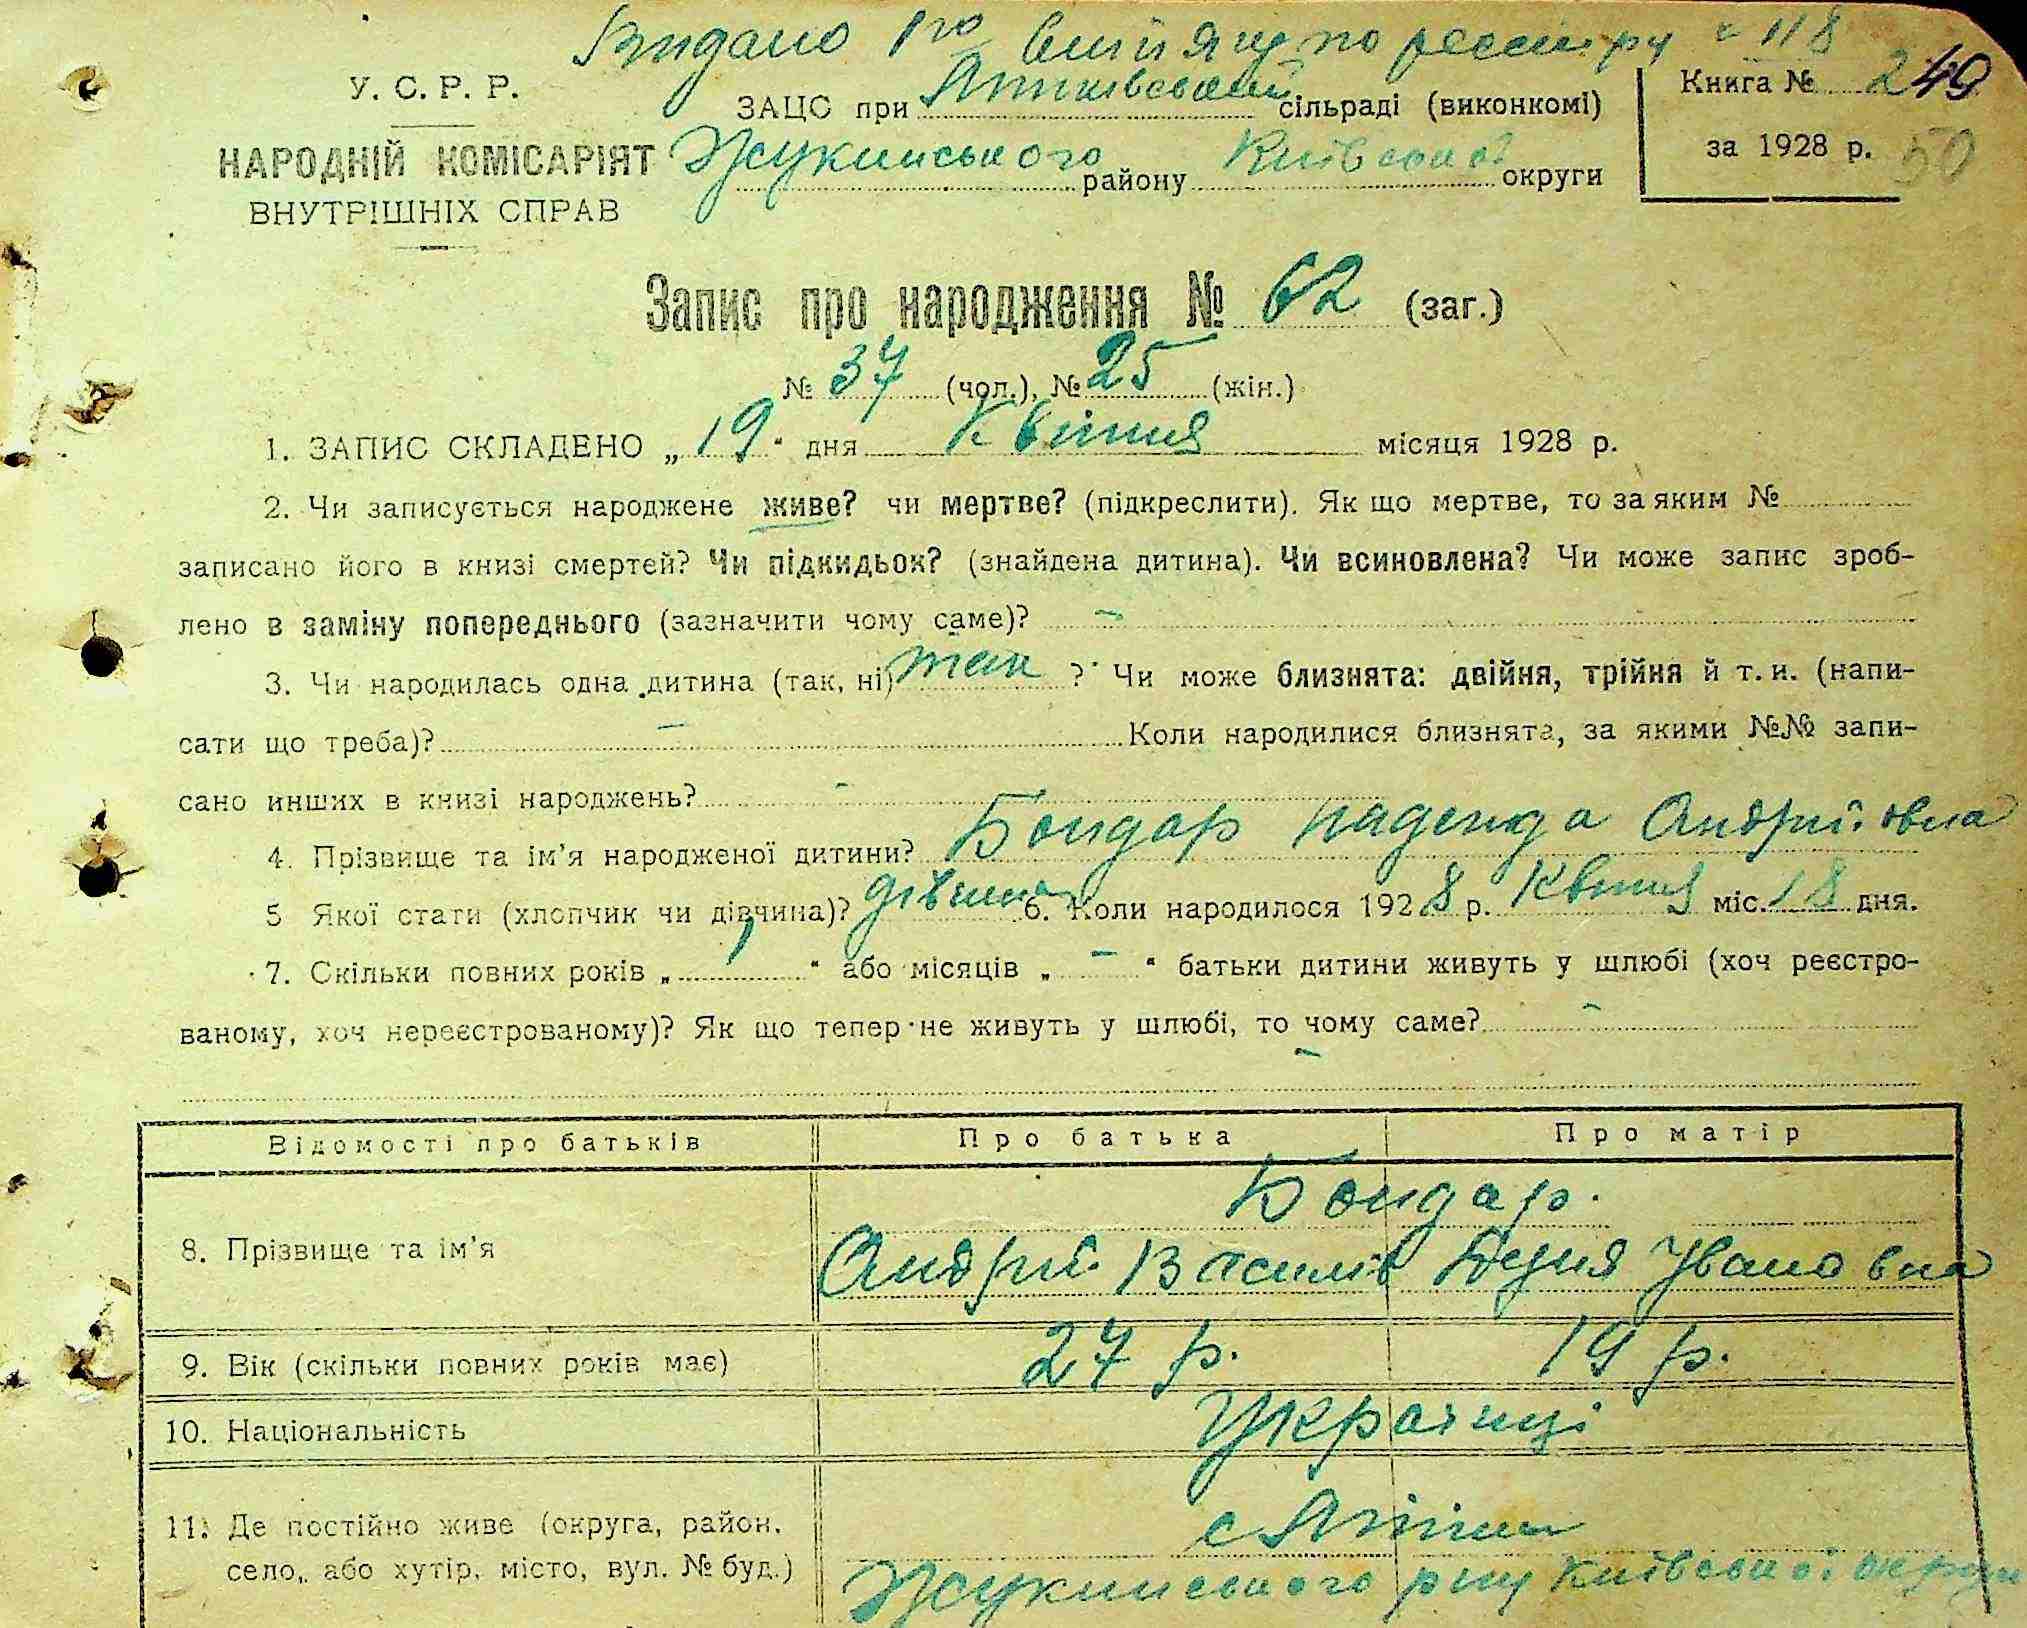 Видано 1го витягу по реєстру № 118
У. С. Р. Р.
НАРОДНІЙ КОМІСАРІЯТ
ВНУТРІШНІХ СПРАВ
ЗАЦС при Літківській сільраді (виконкомі)
Жукинського району Київської округи
Книга № 2 49
за 1928 р. 50
Запис про народження № 62 (заг.)
№ 37 (чол.), № 25 (жін.)
1. ЗАПИС СКЛАДЕНО „ 19 “ дня Квітня місяця 1928 р.
2. Чи записується народжене живе? чи мертве? (підкреслити). Як що мертве, то за яким №
записано його в книзі смертей? Чи підкидьок? (знайдена дитина). Чи всиновлена? Чи може запис зроб-
лено в заміну попереднього (зазначити чому саме)? –
3. Чи народилась одна дитина (так, ні) так ? Чи може близнята: двійня, трійня й т. и. (напи-
сати що треба)? – Коли народилися близнята, за якими №№ запи-
сано инших в книзі народжень? –
4. Прізвище та ім’я народженої дитини? Бондар Надежда Андріївна
5 Якої стати (хлопчик чи дівчина)? дівчина 6. Коли народилося 1928 р. Квітня міс. 18 дня.
7. Скільки повних років „ 1 “ або місяців „ – “ батьки дитини живуть у шлюбі (хоч реєстро-
ваному, хоч нереєстрованому)? Як що тепер не живуть у шлюбі, то чому саме? –
–
Відомості про батьків Про батька Про матір
Бондар.
8. Прізвище та ім’я Андрій Василів Івановна
9. Вік (скільки повних років має) 27 р. 19 р.
10. Національність Українці
11. Де постійно живе (округа, район, с Літки
село, або хутір, місто, вул. № буд.) Жукинського р-ну Київської округи